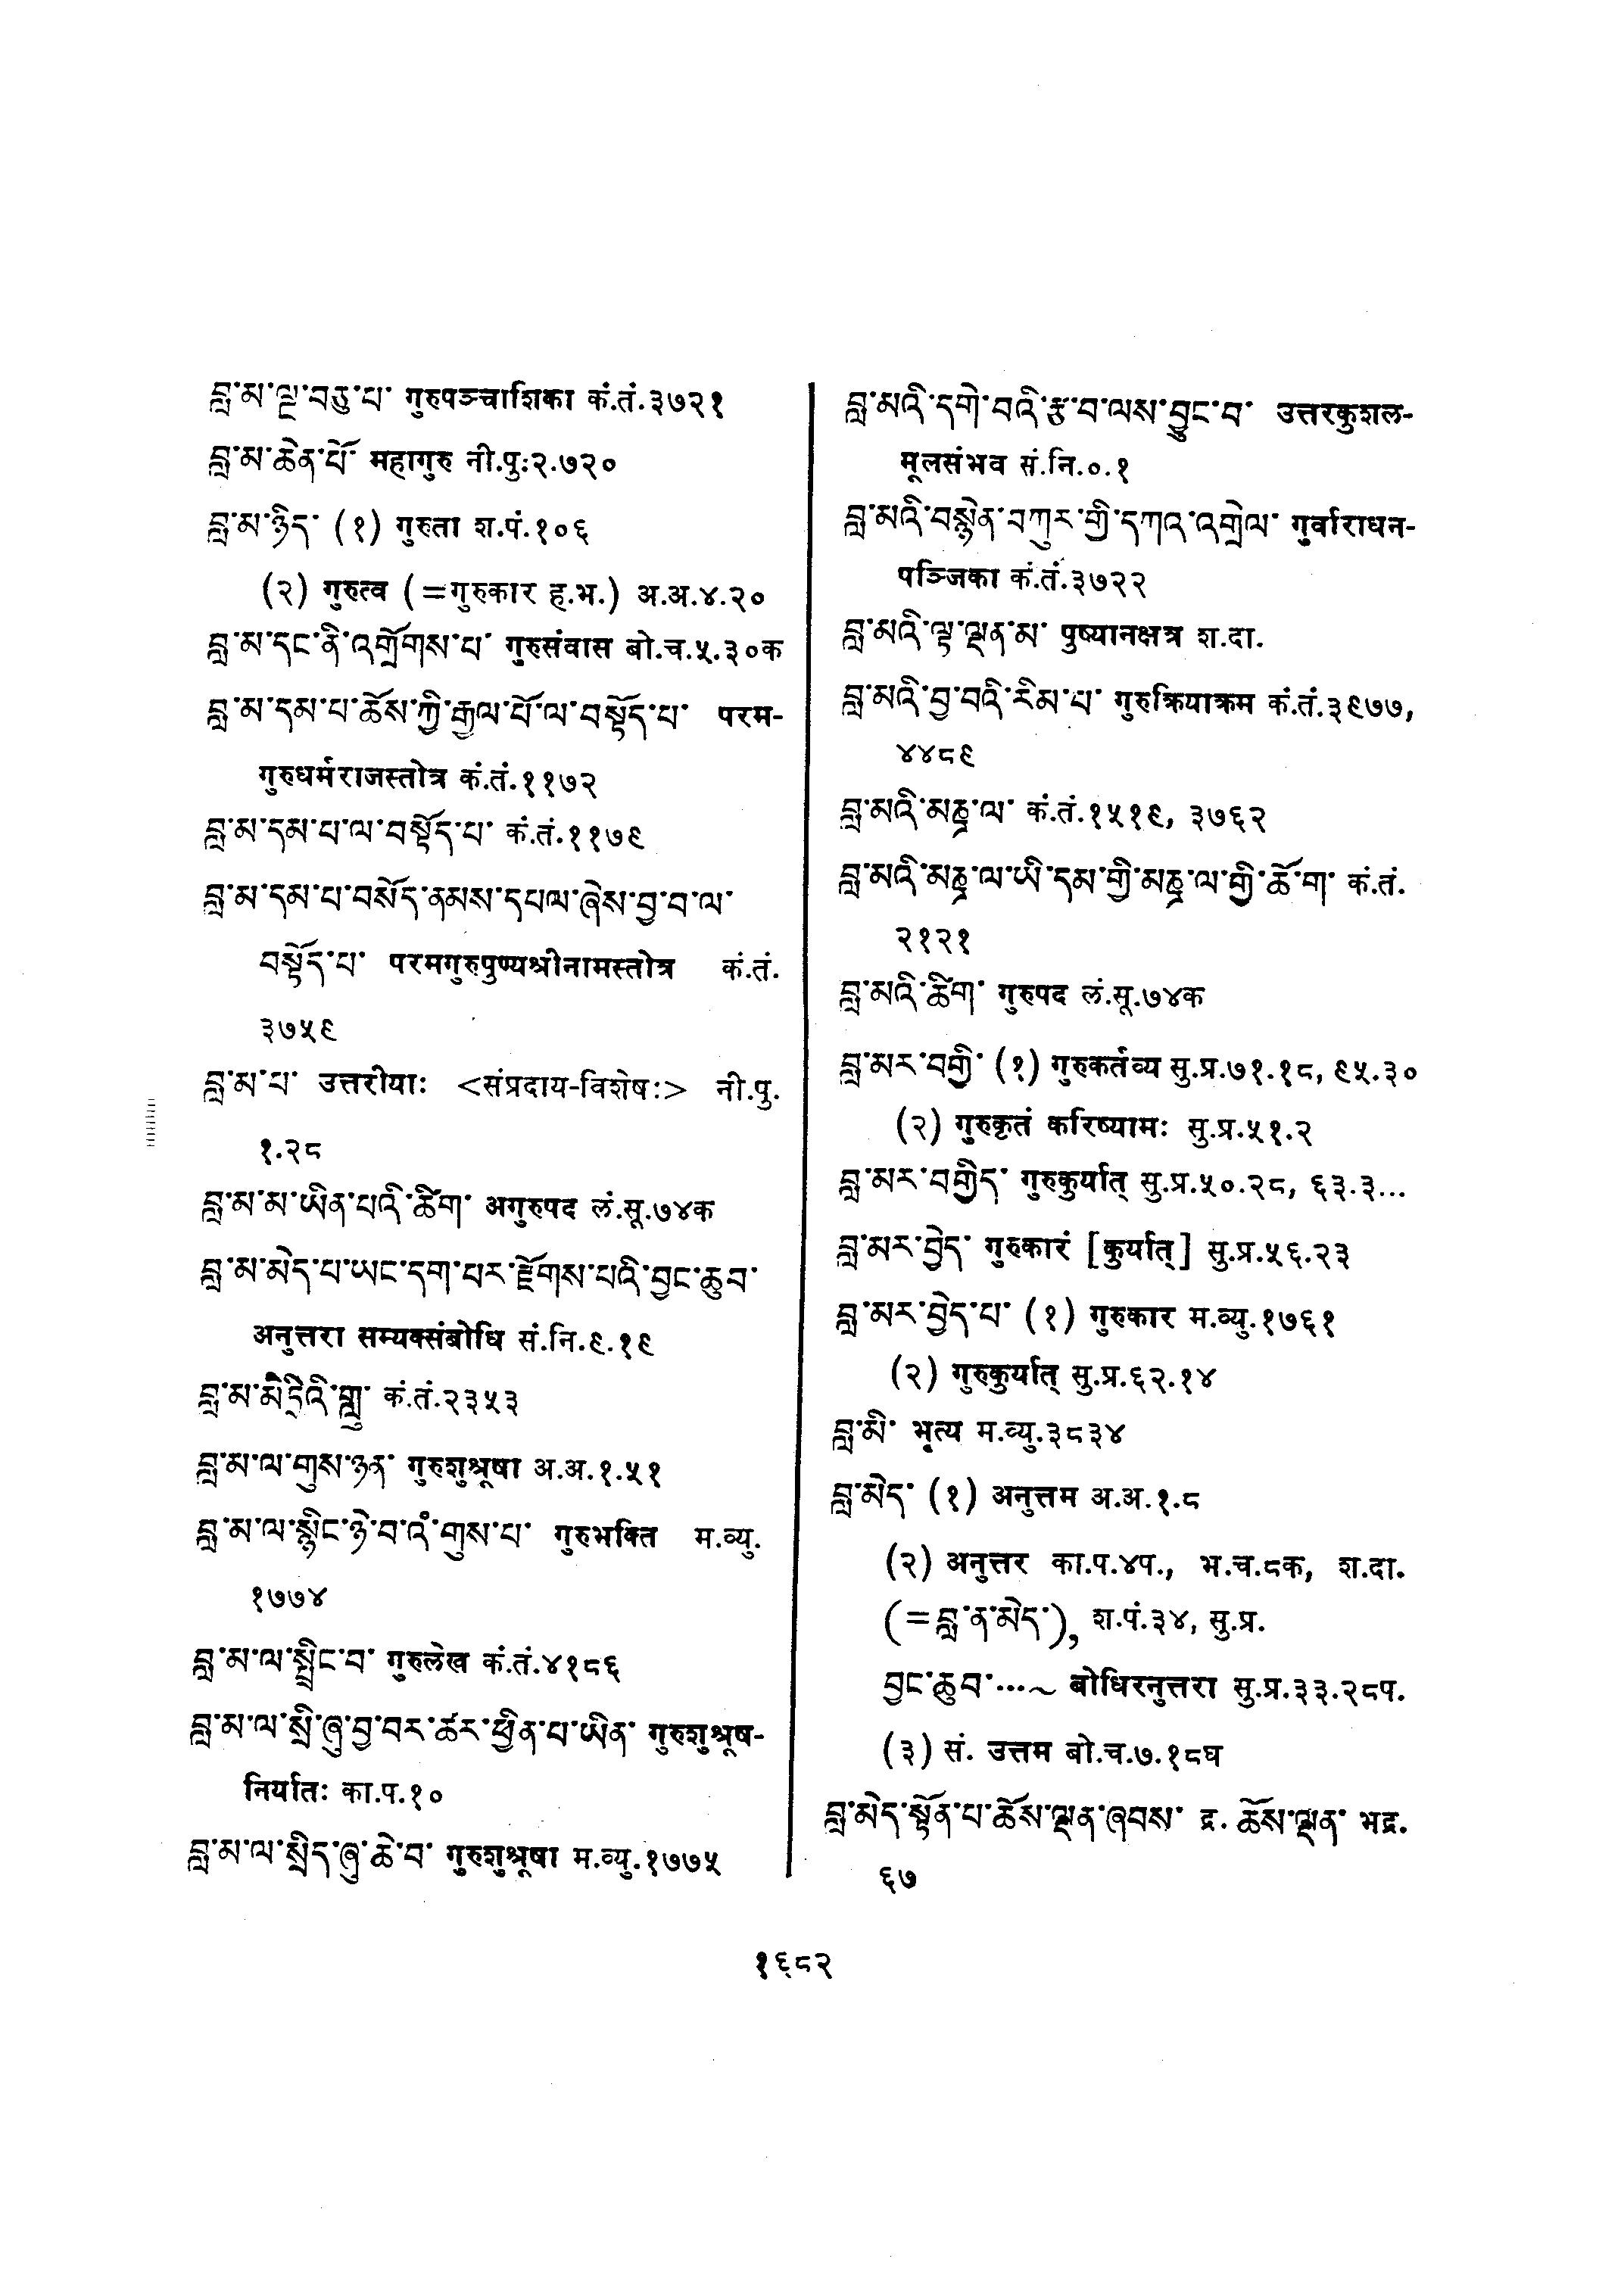 བླ་མ་ལྔ་བཅུ་པ་ गुरुपञ्चाशिका कं.तं.३७२१
བླ་མ་ཆེན་པོ་ महागुरु नी.पु:२.७२०
བླ་མ་ཉིད་ (१) गुरुता श.पं.१०६
(२) गुरुत्व (=गुरुकार ह.भ.) अ.अ.४.२०
བླ་མ་དང་ནི་འགྲོགས་པ་ गुरुसंवास बो.च.५.३०क
བླ་མ་དམ་པ་ཆོས་ཀྱི་རྒྱལ་པོ་ལ་བསྟོད་པ་ परम-
गुरुधर्मराजस्तोत्र कं.तं.११७२
བླ་མ་དམ་པ་ལ་བསྟོད་པ་ कं.तं.११७९
བླ་མ་དམ་པ་བསོད་ནམས་དཔལ་ཞེས་བྱ་བ་ལ་
བསྟོད་པ་ परमगुरुपुण्यश्रीनामस्तोत्र कं.तं.
३७५९
བླ་མ་པ་ उत्तरीयाः <संप्रदाय-विशेषः> नी.पु.
१.२८
བླ་མ་མ་ཡིན་པའི་ཚིག་ अगुरुपद लं.सू.७४क
བླ་མ་མེད་པ་ཡང་དག་པར་རྫོགས་པའི་བྱང་ཆུབ་
अनुत्तरा सम्यक्संबोधि सं.नि.९.१९
བླ་མ་མེདྲེའི་གླུ་ कं.तं.२३५३
བླ་མ་ལ་གུས་ཉན་ गुरुशुश्रूषा अ.अ.१.५१
བླ་མ་ལ་སྙིང་ཉེ་བ་འཾ་གུས་པ་ गुरुभक्ति म.व्यु.
१७७४
བླ་མ་ལ་སྤྲིང་བ་ गुरुलेख कं.तं.४१८६
བླ་མ་ལ་སྲི་ཞུ་བྱ་བར་ཚར་ཕྱིན་པ་ཡིན་ गुरुशुश्रूष-
निर्यातः का.प.१०
བླ་མ་ལ་སྲིད་ཞུ་ཆེ་བ་ गुरुशुश्रूषा म.व्यु.१७७५
བླ་མའི་དགེ་བའི་རྩ་བ་ལས་བྱུང་བ་ उत्तरकुशल-
मूलसंभव सं.नि.०.१
བླ་མའི་བསྙེན་བཀུར་གྱི་དཀའ་འགྲེལ་ गुर्वाराधन-
पञ्जिका कं.तं.३७२२
བླ་མའི་ལྟ་ལྡན་མ་ पुष्यानक्षत्र श.दा.
བླ་མའི་བྱ་བའི་རིམ་པ་ गुरुक्रियाक्रम कं.तं.३९७७,
४४८९
བླ་མའི་མཎྜ་ལ་ कं.तं.१५१९, ३७६२
བླ་མའི་མཎྜ་ལ་ཡི་དམ་གྱི་མཎྜ་ལ་གྱི་ཆོ་ག་ कं.तं.
२१२१
བླ་མའི་ཚིག་ गुरुपद लं.सू.७४क
བླ་མར་བགྱི་ (१) गुरुकर्तव्य सु.प्र.७१.१८, ९५.३०
(२) गुरुकृतं करिष्यामः सु.प्र.५१.२
བླ་མར་བགྱིད་ गुरुकुर्यात् सु.प्र.५०.२८, ६३.३...
བླ་མར་བྱེད་ गुरुकारं [कुर्यात्] सु.प्र.५६.२३
བླ་མར་བྱེད་པ་ (१) गुरुकार म.व्यु.१७६१
(२) गुरुकुर्यात् सु.प्र.६२.१४
བླ་མི་ भृत्य म.व्यु.३८३४
བླ་མེད་ (१) अनुत्तम अ.अ.१.८
(२) अनुत्तर का.प.४प., भ.च.८क, श.दा.
(=བླ་ན་མེད་), श.पं.३४, सु.प्र.
བྱང་ཆུབ་...~ बोधिरनुत्तरा सु.प्र.३३.२८प.
(३) सं. उत्तम बो.च.७.१८घ
བླ་མེད་སྟོན་པ་ཆོས་ལྡན་ཞབས་ द्र. ཆོས་ལྡན་ भद्र.
६७
१६८२